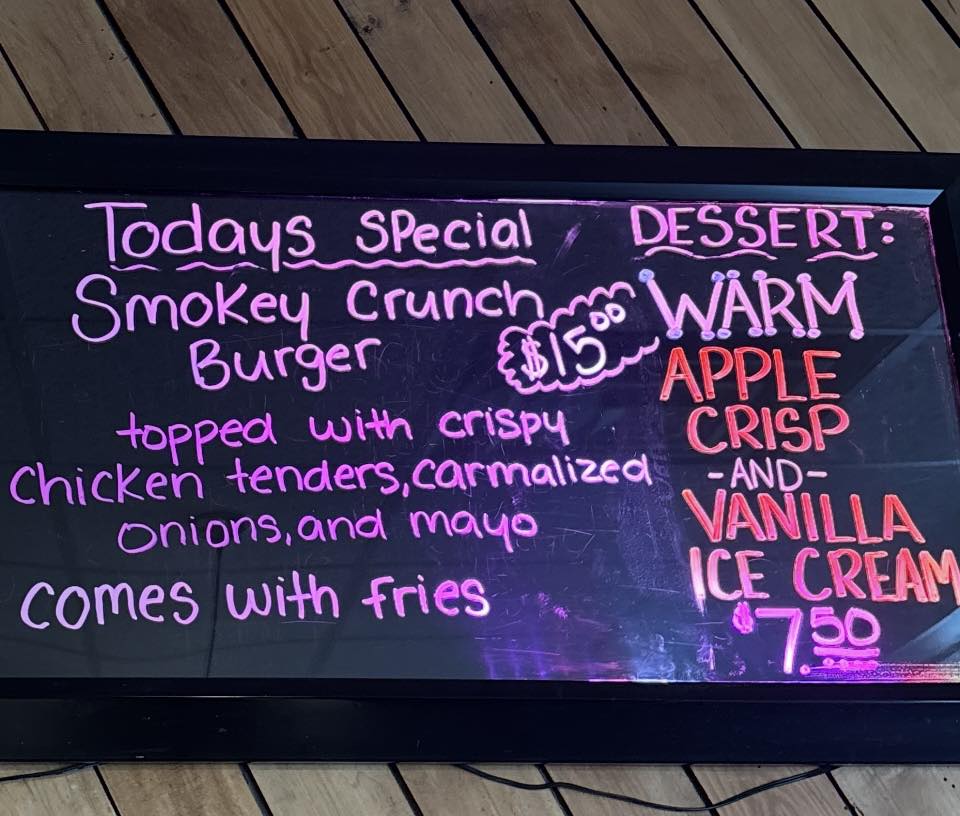 Todays Special
Smokey Crunch
Burger
$15.00
topped with crispy
Chicken tenders, carmalized
onions, and mayo
comes with fries
DESSERT:
WARM
APPLE
CRISP
-AND-
VANILLA
ICE CREAM
$7.50